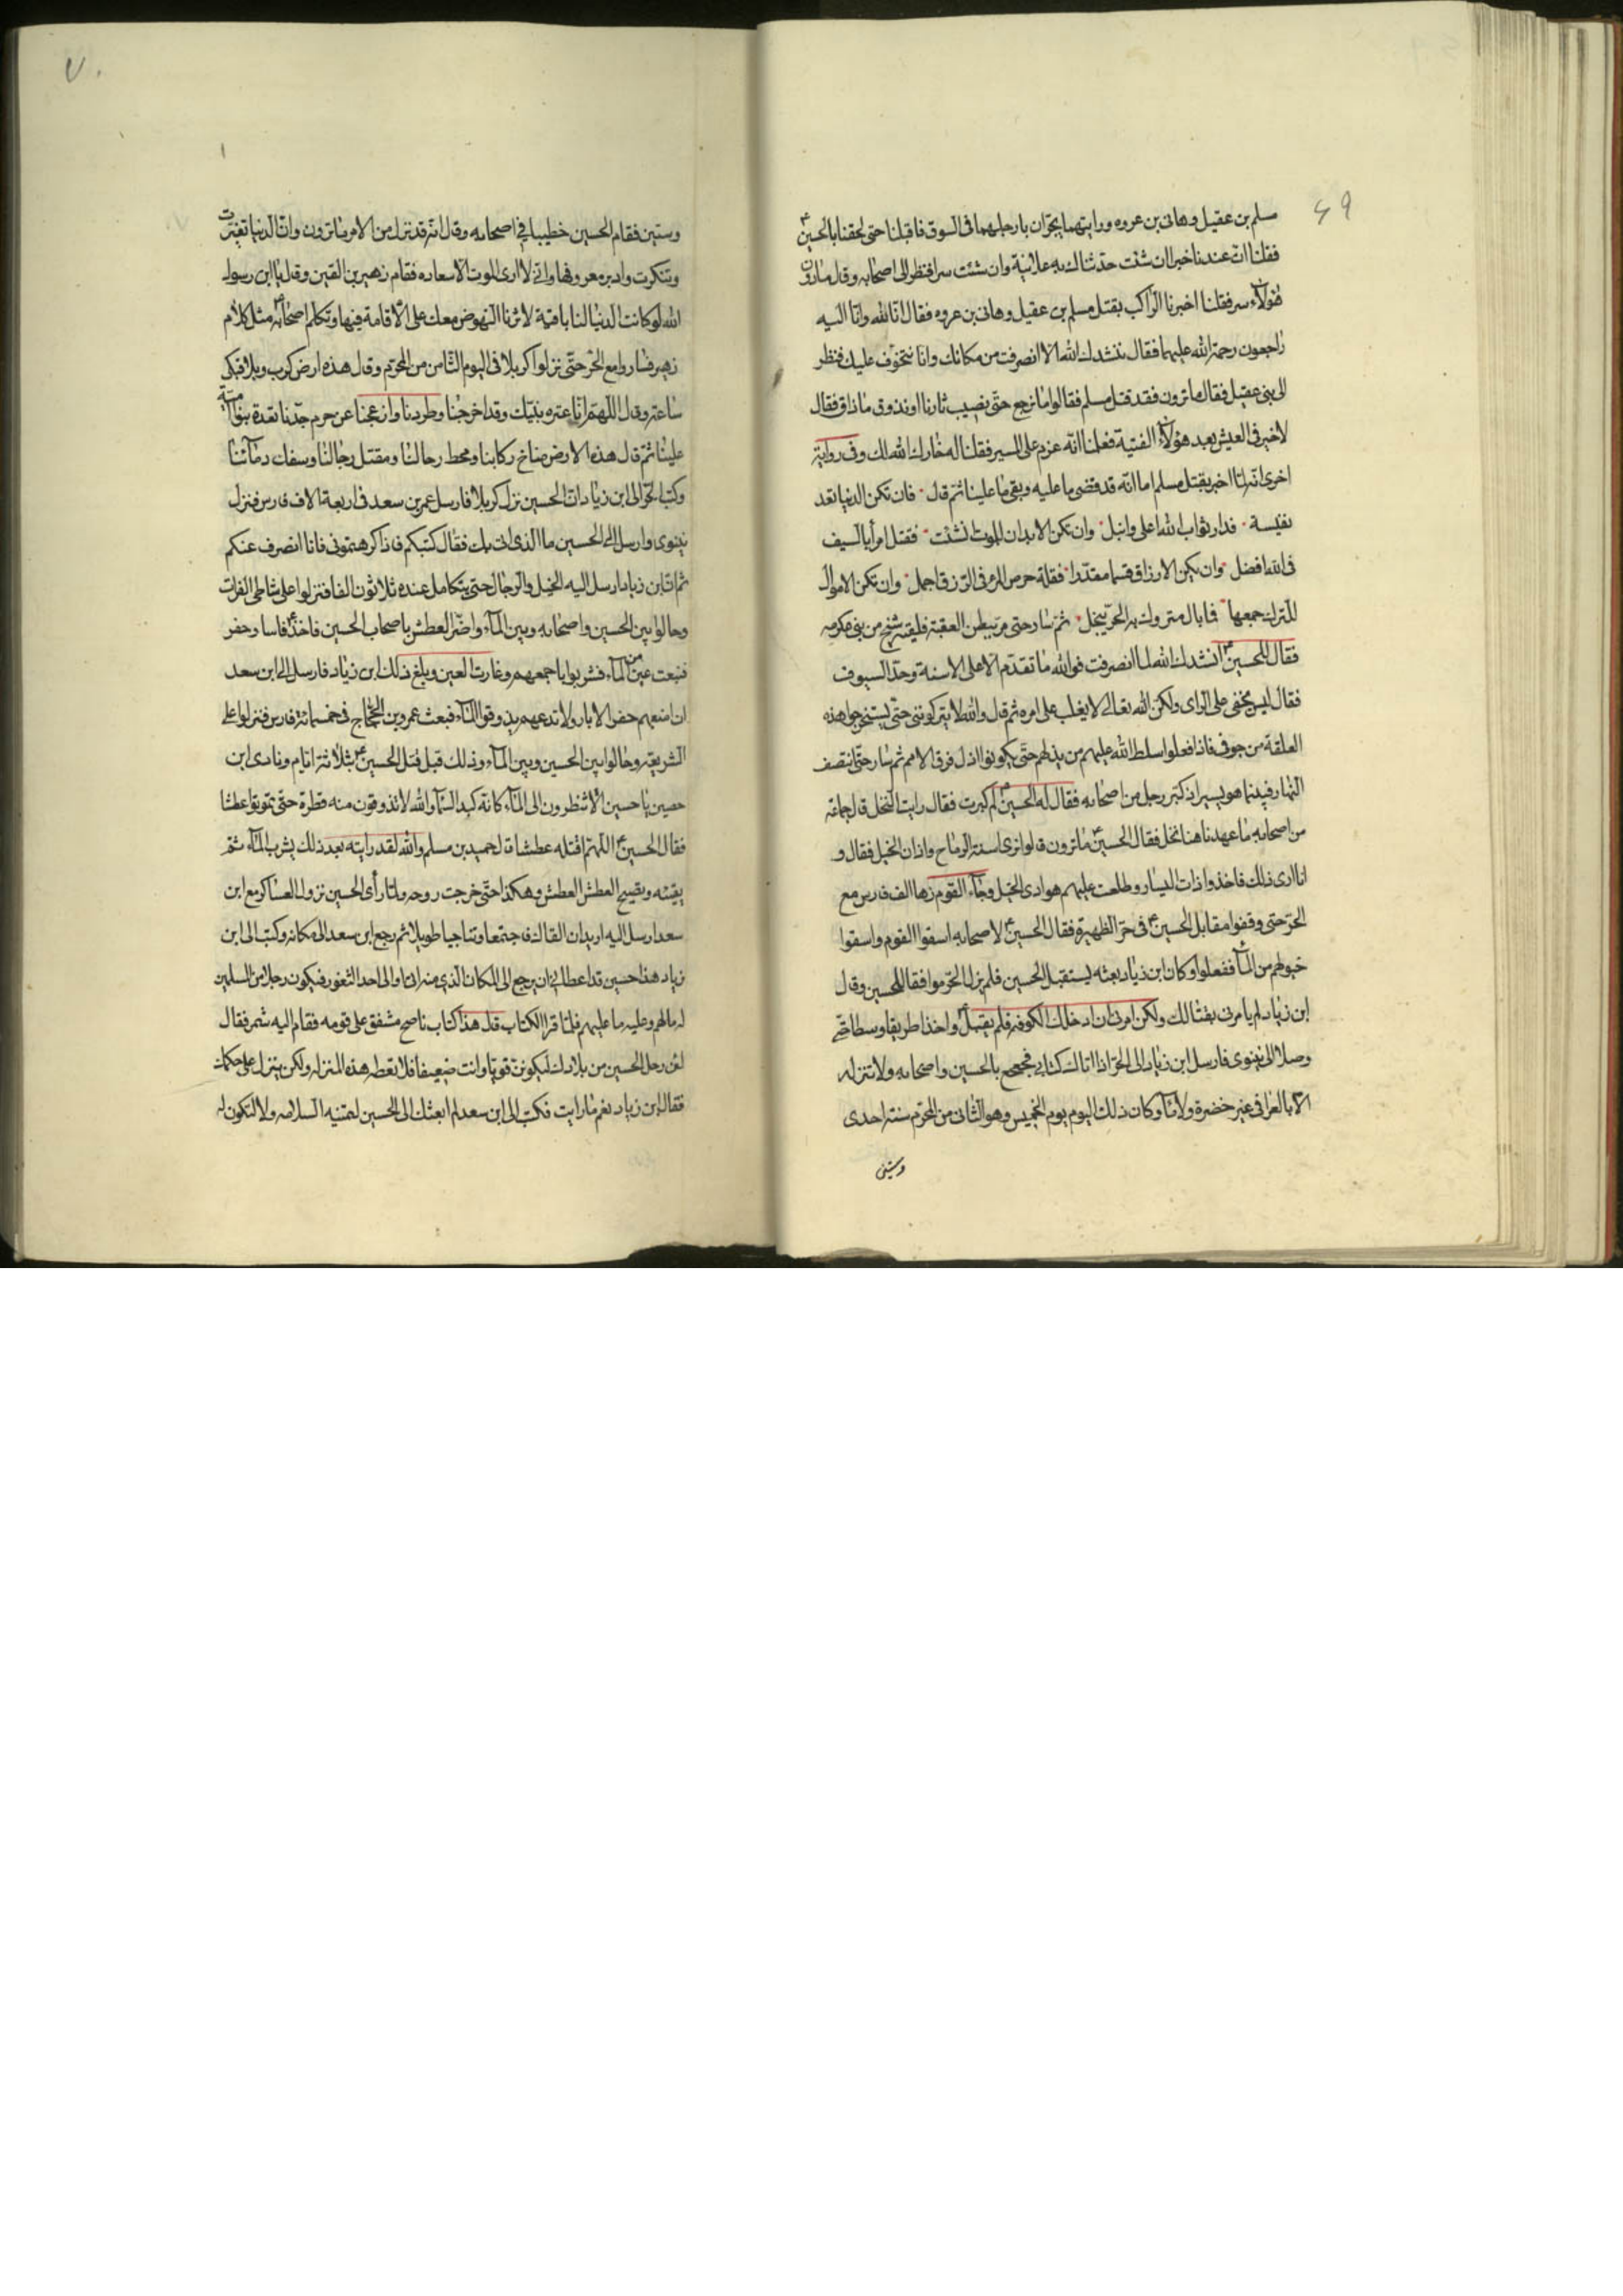 ۶۹
مسلم بن عقیل وهانی بن عروه ورایتهما یجرّان بارجلهما فی السوق فاقبلنا حتی لحقنا بالحسین ع
فقلنا انّ عندنا خبرا ان شئت حدثناك به علانیة وان شئت سرا فنظر الی اصحابه وقال ما دون
هؤلآء سر فقلنا اخبرنا الراکب بقتل مسلم بن عقیل وهانی بن عروه فقال انا لله وانّا الیه
راجعون رحمة الله علیهما فقال ننشدك الله الا انصرفت من مکانك وانا نتخوّف علیك فنظر
الی بنی عقیل فقال ما ترون فقد قتل مسلم فقالوا ما نرجع حتّی نصیب ثارنا او نذوق ما ذاق فقال
لا خیر فی العیش بعد هؤلآء الفتیة فعلمنا انّه عزم علی المسیر فقلنا له خار الله لك وفی روایة
اخری انّه لما اخبر بقتل مسلم اما انّه قد قضی ما علیه وبقی ما علینا ثمّ قال فان تکن الدنیا تعد
نفیسة فدار ثواب الله اعلی وانبل وان تکن الابدان للموت انشئت فقتل امرأ بالسیف
فی الله افضل وان یکن الارزاق قسما مقدّرا فقلّة حرص المرء فی الرزق اجمل وان تکن الاموال
للترك جمعها فما بال متروك به الحرّ یبخل ثمّ سار حتی مرّ ببطن العقبة فلیقیه شیخ من بنی عکرمه
فقال للحسین ع انشدك الله لما انصرفت فوالله ما تقدّم الا علی الاسنة وحدّ السیوف
فقال لیس یخفی علی الرای ولکن الله تعالی لا یغلب علی امره ثم قال والله لا یترکوننی حتّی یستخرجوا هذه
العلقة من جوفی فاذا فعلوا سلط الله علیهم من یذلهم حتّی یکونوا اذل فرق الامم ثم سار حتّی انتصف
النهار فبینما هو یسیر اذ کبّر رجل من اصحابه فقال له الحسین ع لم کبرت فقال رایت النخل قال جماعة
من اصحابه ما عهدنا هنا نخل فقال الحسین ع ما ترون قالوا نری اسنة الرماح واذان الخیل فقال و
انا اری ذلك فاخذوا ذات الیسار وطلعت علیهم هوادی الخیل وجآء القوم زهآ الف فارس مع
الحرّ حتی وقفوا مقابل الحسین ع فی حرّ الظهیرة فقال الحسین ع لاصحابه اسقوا القوم واسقوا
خیولهم من المآء ففعلوا وکان ابن زیاد بعثه لیستقبل الحسین فلم یزل الحرّ موافقا للحسین وقال
ابن زیاد لم یامرنی بقتالك ولکن امرنی ان ادخلك الکوفه فلم یقبل واخذا طریقا وسطا حتّی
وصلا الی نینوی فارسل ابن زیاد الی الحرّ اذا اتاك کتابی فجعجع بالحسین واصحابه ولا تنزله
الا بالعرا فی غیر خضرة ولا مآء وکان ذلك الیوم یوم الخمیس وهو الثانی من المحرّم سنة احدی
وستین
۷۰
وستین فقام الحسین خطیبا فی اصحابه وقال انّه قد نزل من الامر ما ترون وانّ الدنیا تغیّرت
وتنکرت وادبر معروفها وانّی لا اری الموت الا سعاده فقام زهیر بن القین وقال یا ابن رسول
الله لو کانت الدنیا لنا باقیة لاثرنا النهوض معك علی الاقامة فیها وتکلم اصحابه مثل کلام
زهیر فساروا مع الحرّ حتّی نزلوا کربلا فی الیوم الثامن من المحرّم وقال هذه ارض کرب وبلا فبکی
ساعة وقال اللهمّ انا عترة نبیّك وقد اخرجنا وطردنا وازعجنا عن حرم جدّنا تعدت بنو امیّة
علینا ثمّ قال هذه الارض مناخ رکابنا ومحط رحالنا ومقتل رجالنا وسفك دمآئنا
وکتب الحرّ الی ابن زیاد ان الحسین نزل کربلا فارسل عمر بن سعد فی اربعة الاف فارس فنزل
نینوی وارسل الی الحسین ما الذی اتی بك فقال کتبکم فاذا کرهتمونی فانا انصرف عنکم
ثم انّ ابن زیاد ارسل الیه الخیل والرجال حتی یتکامل عنده ثلاثون الفا فنزلوا علی شاطی الفرات
وحالوا بین الحسین واصحابه وبین المآء واضرّ العطش باصحاب الحسین فاخذ فاسا وحفر
فنبعت عین من المآء فشربوا باجمعهم وغارت العین وبلغ ذلك ابن زیاد فارسل الی ابن سعد
ان امنعهم حفر الابار ولا تدعهم یذوقوا المآء فبعث عمرو بن الحجاج فی خمسمائة فارس فنزلوا علی
الشریعة وحالوا بین الحسین وبین المآء وذلك قبل قتل الحسین ع بثلاثة ایام ونادی ابن
حصین یا حسین الا تنظرون الی المآء کانّه کبد السّمآء والله لا تذوقون منه قطرة حتّی تموتوا عطشا
فقال الحسین ع اللهمّ اقتله عطشا قال حمید بن مسلم والله لقد رایته بعد ذلك یشرب المآء ثمّ
یقیئه ویصیح العطش العطش وهکذا حتّی خرجت روحه ولمّا رأی الحسین نزول العساکر مع ابن
سعد ارسل الیه ارید ان القاك فاجتمعا وتناجیا طویلا ثم رجع ابن سعد الی مکانه وکتب الی ابن
زیاد هذا حسین قد اعطانی ان یرجع الی المکان الذی منه اتی او الی احد الثغور فیکون رجلا من المسلمین
له ما لهم وعلیه ما علیهم فلمّا قرا الکتاب قال هذا کتاب ناصح مشفق علی قومه فقام الیه شمر فقال
لئن رحل الحسین من بلادك لیکوننّ قویّا وانت ضعیفا فلا تعطه هذه المنزله ولکن ینزل علی حکمك
فقال ابن زیاد نعم ما رایت فکتب الی ابن سعد لم ابعثك الی الحسین لتمنیه السلامه ولا لتکون له